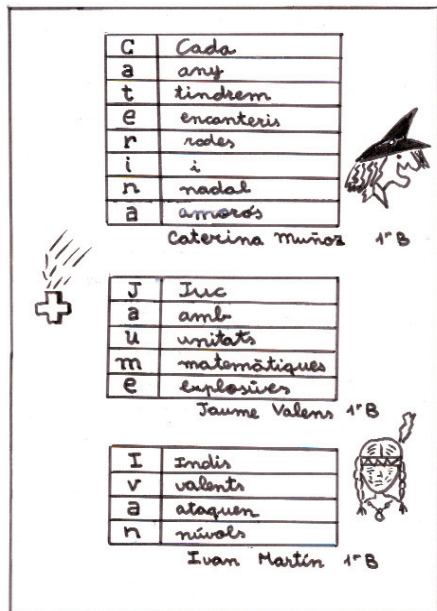 C Cada
a any
t tindrem
e encanteris
r rodes
i i
n nadal
a amorós
Caterina Muñoz 1er B
J Juc
a amb
u unitats
m matemàtiques
e explosives
Jaume Valens 1er B
I Indis
v valents
a ataquen
n núvols
Ivan Martín 1er B